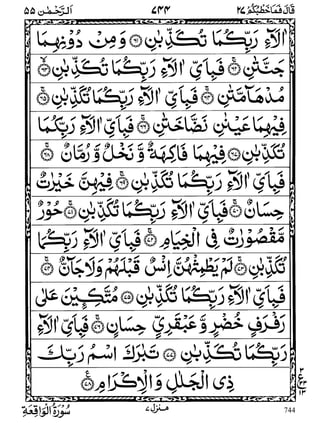 قَالَ فَمَاخَطْبُكُمْ ٢٧ ٧٤٤ اَلرَّحْمٰن ٥٥
اٰلَآءِ رَبِّكُمَا تُكَذِّبٰنِ ﴿٦١﴾ وَ مِنْ دُوْنِهِمَا
جَنَّتٰنِ ﴿٦٢﴾ فَبِاَيِّ اٰلَآءِ رَبِّكُمَا تُكَذِّبٰنِ ﴿٦٣﴾
مُدْهَآمَّتٰنِ ﴿٦٤﴾ فَبِاَيِّ اٰلَآءِ رَبِّكُمَا تُكَذِّبٰنِ ﴿٦٥﴾
فِيْهِمَا عَيْنٰنِ نَضَّاخَتٰنِ ﴿٦٦﴾ فَبِاَيِّ اٰلَآءِ رَبِّكُمَا
تُكَذِّبٰنِ ﴿٦٧﴾ فِيْهِمَا فَاكِهَةٌ وَّ نَخْلٌ وَّ رُمَّانٌ ﴿٦٨﴾
فَبِاَيِّ اٰلَآءِ رَبِّكُمَا تُكَذِّبٰنِ ﴿٦٩﴾ فِيْهِنَّ خَيْرٰتٌ
حِسَانٌ ﴿٧٠﴾ فَبِاَيِّ اٰلَآءِ رَبِّكُمَا تُكَذِّبٰنِ ﴿٧١﴾ حُوْرٌ
مَّقْصُوْرٰتٌ فِي الْخِيَامِ ﴿٧٢﴾ فَبِاَيِّ اٰلَآءِ رَبِّكُمَا
تُكَذِّبٰنِ ﴿٧٣﴾ لَمْ يَطْمِثْهُنَّ اِنْسٌ قَبْلَهُمْ وَلَا جَآنٌّ ﴿٧٤﴾
فَبِاَيِّ اٰلَآءِ رَبِّكُمَا تُكَذِّبٰنِ ﴿٧٥﴾ مُتَّكِـِٕيْنَ عَلٰى
رَفْرَفٍ خُضْرٍ وَّ عَبْقَرِيٍّ حِسَانٍ ﴿٧٦﴾ فَبِاَيِّ اٰلَآءِ
رَبِّكُمَا تُكَذِّبٰنِ ﴿٧٧﴾ تَبٰرَكَ اسْمُ رَبِّكَ
ذِي الْجَلٰلِ وَ الْاِكْرَامِ ﴿٧٨﴾
سُوْرَةُ الْوَاقِعَةِ منزل ٧ 744